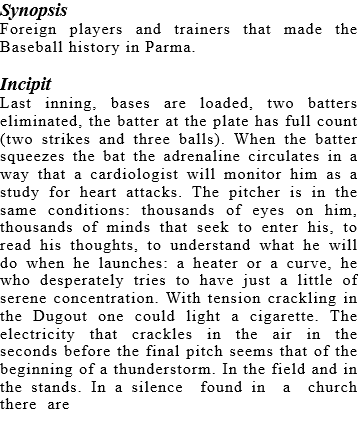 Synopsis
Foreign players and trainers that made the
Baseball history in Parma.
Incipit
Last inning, bases are loaded, two batters
eliminated, the batter at the plate has full count
(two strikes and three balls). When the batter
squeezes the bat the adrenaline circulates in a
way that a cardiologist will monitor him as a
study for heart attacks. The pitcher is in the
same conditions: thousands of eyes on him,
thousands of minds that seek to enter his, to
read his thoughts, to understand what he will
do when he launches: a heater or a curve, he
who desperately tries to have just a little of
serene concentration. With tension crackling in
the Dugout one could light a cigarette. The
electricity that crackles in the air in the
seconds before the final pitch seems that of the
beginning of a thunderstorm. In the field and in
the stands. In a silence found in a church
there are